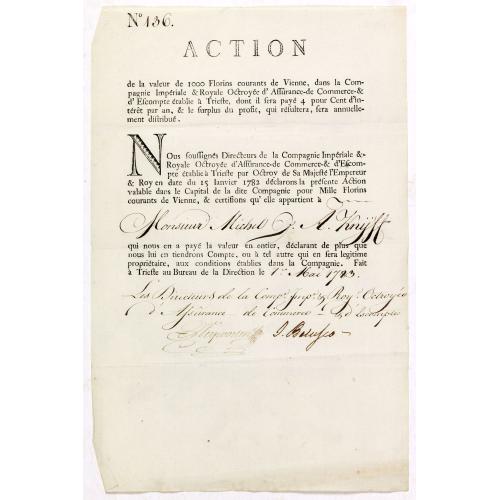 No 136.
ACTION
de la valeur de 1000 Florins courants de Vienne, dans la Com-
pagnie Impériale & Royale Octroyée d'Assûrance-de Commerce-&
d'Escompte établie à Trieste, dont il sera payé 4 pour Cent d'in-
térêt par an, & le surplus du profit, qui résultera, sera annuelle-
ment distribué.
Nous soussignés Directeurs de la Compagnie Impériale &
Royale Octroyée d'Assûrance-de Commerce-& d'Escom-
pte établie à Trieste par Octroy de Sa Majesté l'Empereur
& Roy en date du 15 Janvier 1782 déclarons la présente Action
valable dans le Capital de la dite Compagnie pour Mille Florins
courants de Vienne, & certifions qu'elle appartient à
Monsieur Michel J. A. Knijff
qui nous en a payé la valeur en entier, déclarant de plus que
nous lui en tiendrons Compte, ou à tel autre qui en sera legitime
propriétaire, aux conditions établies dans la Compagnie. Fait
à Trieste au Bureau de la Direction le 1r Mai 1783.
Les Directeurs de la Comp. Imp. & Roy. Octroyée
d'Assûrance - de Commerce - & d'Escompte